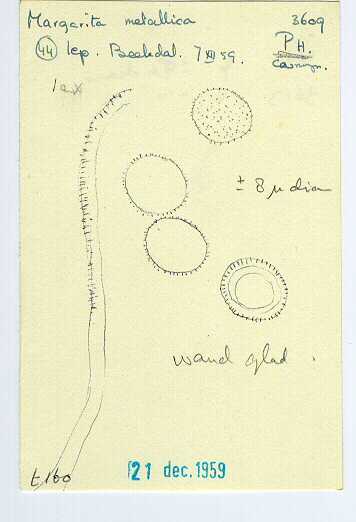 Margarita metallica 3609
44 lep. Beekdal. 7 XII 59. PH.
± 8 µ diam
wand glad.
t 160
21 dec. 1959